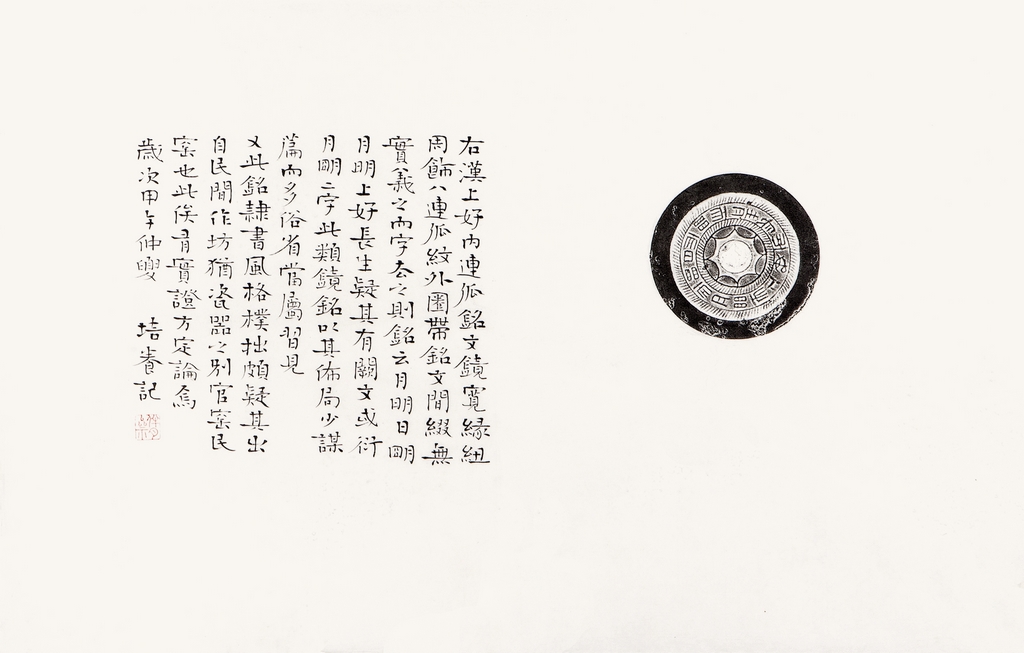 右漢上好內連弧銘文鏡寬緣紐
周飾八連弧紋外圈帶銘文間綴無
實義之而字去之則銘云月明日朙
月明上好長生疑其有闕文或衍
月朙二字此類鏡銘以其佈局少謀
篇而多俗省當屬習見
又此銘隸書風格樸拙頗疑其出
自民間作坊猶瓷器之別官窯民
窯也此俟有實證方定論焉
歲次甲午仲夏 培養記